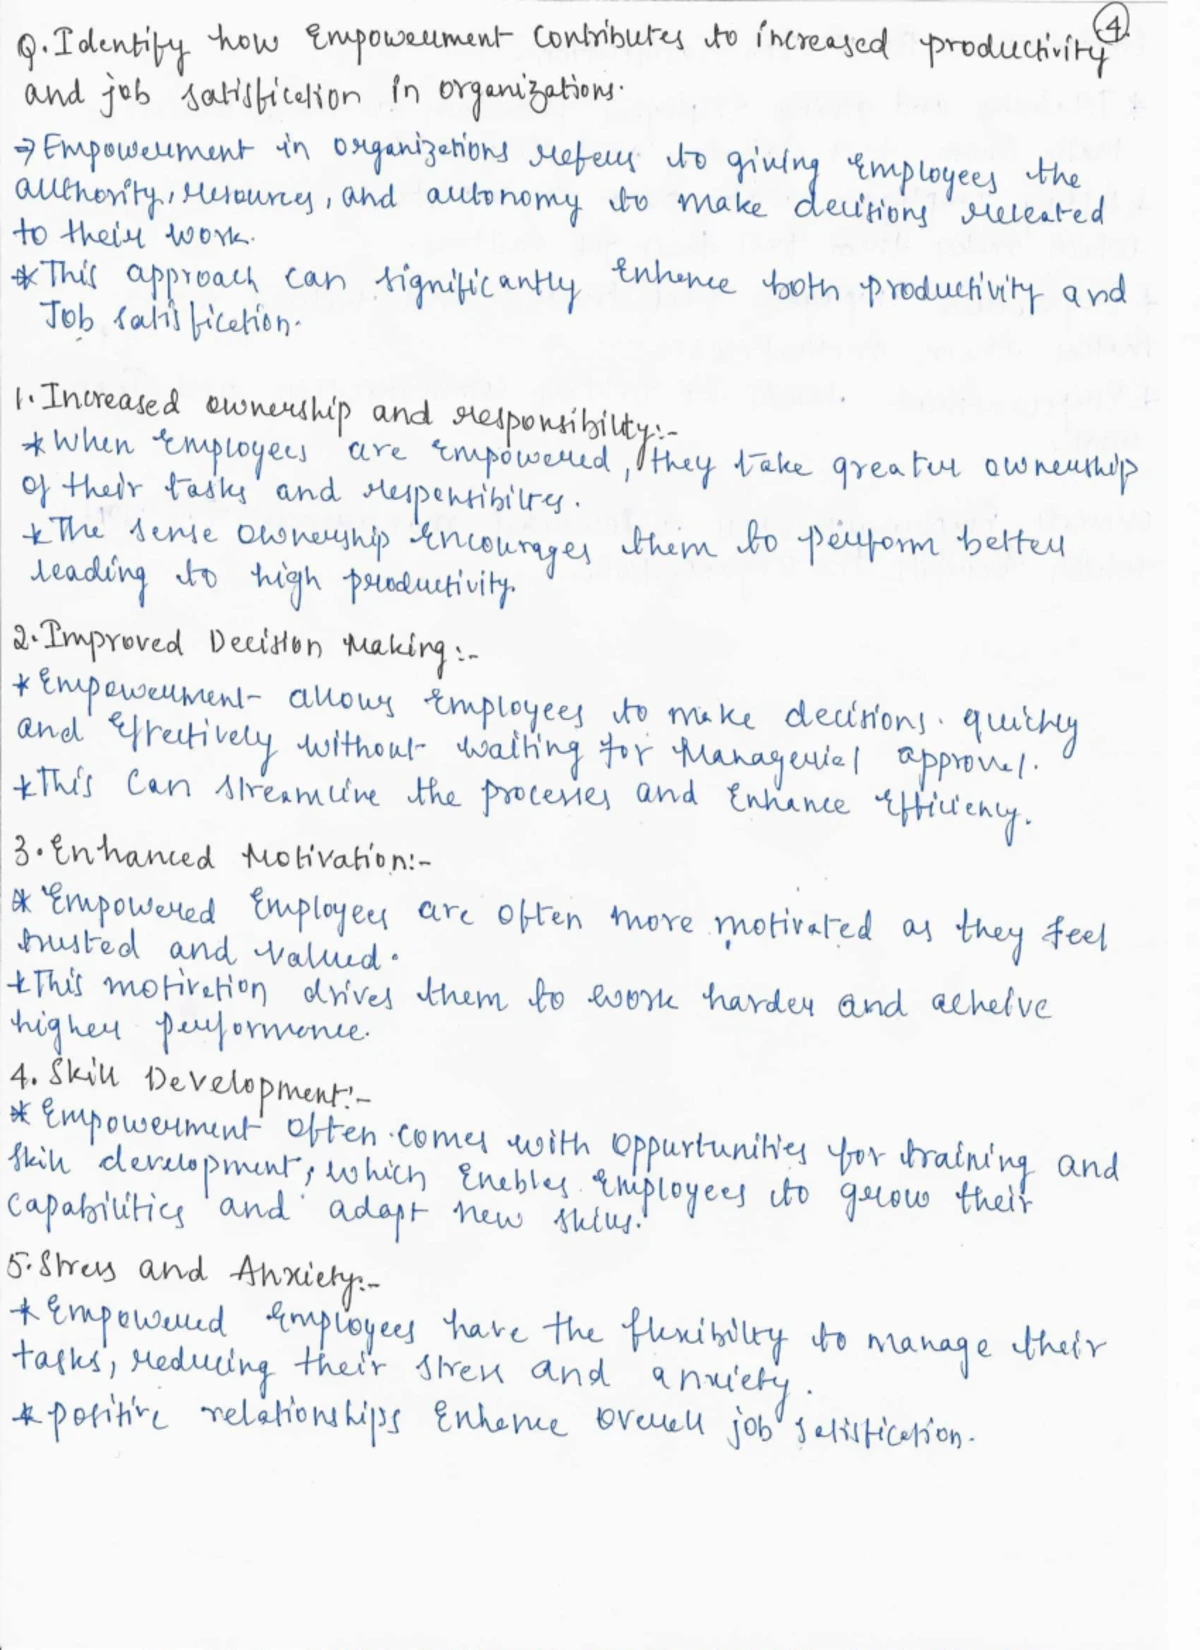 4.
Q. Identify how Empowerment contributes to increased productivity
and job satisfication in organizations.
→ Empowerment in organizations refers to giving Employees the
authority, resources, and autonomy to make decisions releated
to their work.
* This approach can significantly Enhence both productivity and
Job satisfication.
1. Increased ownership and responsibility:-
* When Employees are Empowered, they take greater ownership
of their tasks and responsibilites.
* The sense ownership Encourages them to perform better
leading to high productivity.
2. Improved Decision Making:-
* Empowerment allows Employees to make decisions. quickly
and Effectively without waiting for Managerial approvel.
* This can streamline the processes and Enhance Efficiency.
3. Enhanced Motivation:-
* Empowered Employees are often more motivated as they feel
trusted and valued.
* This motivetion drives them to work harder and acheive
higher performence.
4. Skill Development:-
* Empowerment often comes with oppurtunities for training and
skill development, which Enebles Employees to grow their
capabilities and adapt new skills.
5. Stress and Anxiety:-
* Empowered Employees have the flexibilty to manage their
tasks, reducing their stress and anxiety.
* positive relationships Enhence overell job satisfication.